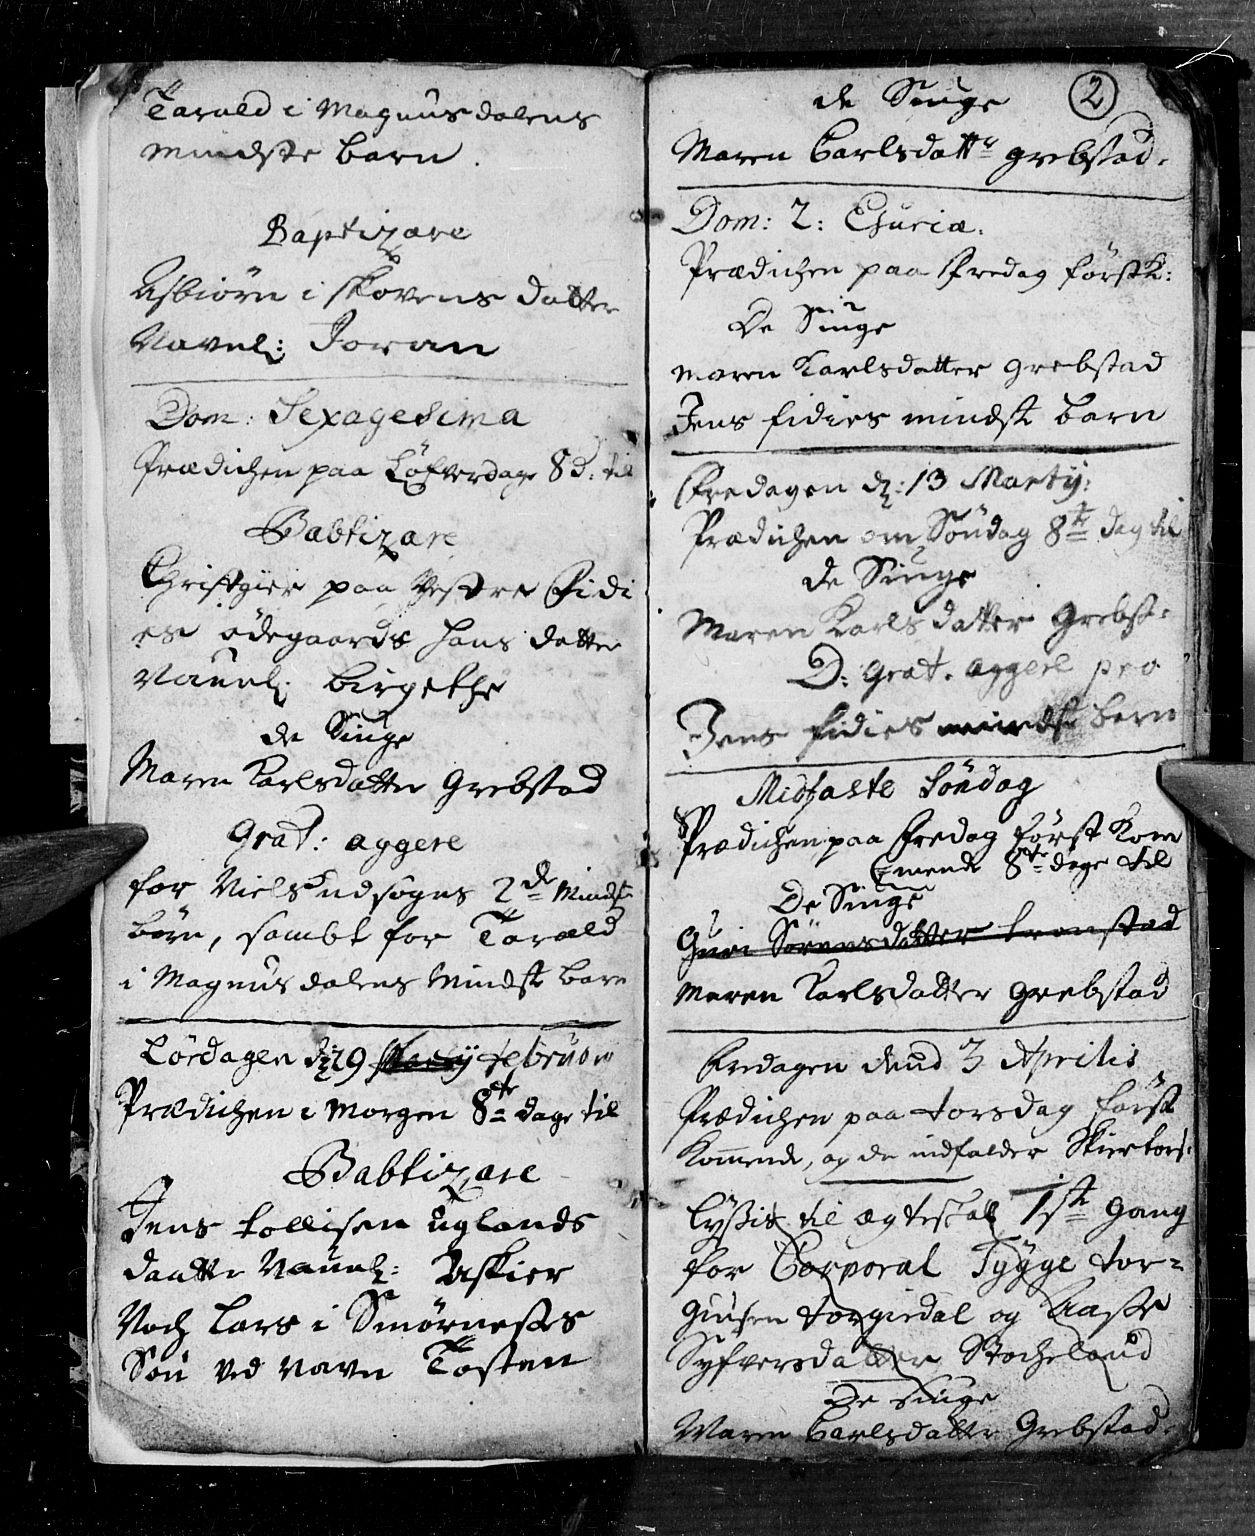 Tarald i Magnusdalens
mindste barn.
Baptizare
Asbiörn i Skovens datter
Navnl: Joran
Dom: Sexagesima
Prædichen paa Löfverdag 8 d: til
Babtizare
Christopher paa Vestre Fidi
es ödegaards hans datter
Naunl: Birgethe
de Siuge
Maren Karlsdatter Grebstad
Grat: aggere
for Niels Knudsøgns 2de Mindste
börn, sambt for Tarald
i Magnusdalens Mindste barn
Lördagen d: 19 Februar
Prædichen i Morgen 8te dage til
Babtizare
Jens Tollisen Uglands
daatter Naunl: Askier
Noch Lars i Smörnesses
Søn ved navn Tosten
2
de Siuge
Maren Carlsdatter Grebstad.
Dom: 2: Esuriæ.
Prædichen paa Fredag förstk:
De Siuge
Maren Karlsdatter Grebstad
Jens Fidies mindste barn
Fredagen d: 13 Marty:
Prædichen om Söndag 8te dag til
de Siuge
Maren Karlsdatter Grebst:
D: Grat. aggere pro
Jens Fidies mindste barn
Midfaste Söndag
Prædichen paa Fredag först Kom
mende 8te dage til
De Siuge
Guri Sörensdatter Tronstad
Maren Karlsdatter Grebstad
Fredagen dend 3 Aprilis
Prædichen paa Torsdag först
Kommende, og da indfalder Skiertors:
Lyßit til Ægteskab 1ste Gang
for Corporal Tygge Tor=
giusen Torgiedal og Aaste
Syfversdatter Stocheland
De Siuge
Maren Carlsdatter Grebstad.